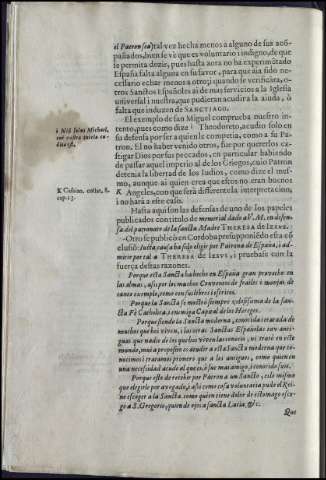 el Patron sea) tal vez hecha menos a alguno de sus aog-
passados, bien se ve que es voluntario i indigno, de que
se permita dezir, pues hasta aora no ha experimẽtado
España falta alguna en su favor, para que aia sido ne-
cessario echar menos a otro; quando se verificára, o-
tros Sanctos Españoles ai de mas servicios a la Iglesia
universal i nuestra, que pudieran acudir a la aiuda, ò
falta que inducen de SANCTIAGO.
El exemplo de san Miguel comprueba nuestro in-
tento; pues como dize i Theodoreto, acudio solo en
su defensa por ser a quien le competia, como a su Pa-
tron. El no haver venido otros, fue por querer los ca-
stigar Dios por sus peccados, en particular habiendo
de passar aquel imperio al de los Griegos, cuio Patron
detenia la libertad de los Iudios, como dize el mes-
mo, aunque ai quien crea que estos no eran buenos
K Angeles, con que serà differente la interpretacion,
i no hará a este caso.
i Nisi Iulus Michael,
K
cap. 13.
Hasta aqui son las defensas de uno de los papeles
publicados con titulo de memorial dado a V. M. en defen-
sa del patronato de la sancta Madre THERESA de IESVS.
Otro se publicò en Cordoba presupponiẽdo esta cõ-
clusiõ: Iusta causa ha sido elegir por Patrona de España, i ad-
mitir por tal a THERESA de IESVS, i pruebase con la
fuerça destas razones.
Porque esta Sancta ha hecho en España gran provecho en
las almas, assi por los muchos Conventos de frailes i monjas, de
tanto exemplo, como con sus libros i escritos.
Porque la Sancta se mostrò siempre zelosissima de la san-
cta Fè Catholica, i enemiga Capital de los Hereges.
Porque siendo la Sancta moderna, conocida i tratada de
muchos que hoi viven, i las otras Sanctas Españolas tan anti-
guas que nadie de los que hoi viven las conocio, ni tratò en este
mundo, mui a proposito es acudir a esta Sancta moderna que co-
nocimos i tratamos primero que a las antiguas, como quien en
una necessidad acude al que es, ò fue mas amigo, i conocido suio.
Porque esto de recebir por Patron a un Sancto, es lo mismo
que elegirle por avogado, i assi como es cosa voluntaria pudo el Rei-
no escoger a la Sancta, como quien tiene dolor de estomago esco-
ge a S. Gregorio, quien de ojos a sancta Lucia, &c.
Que